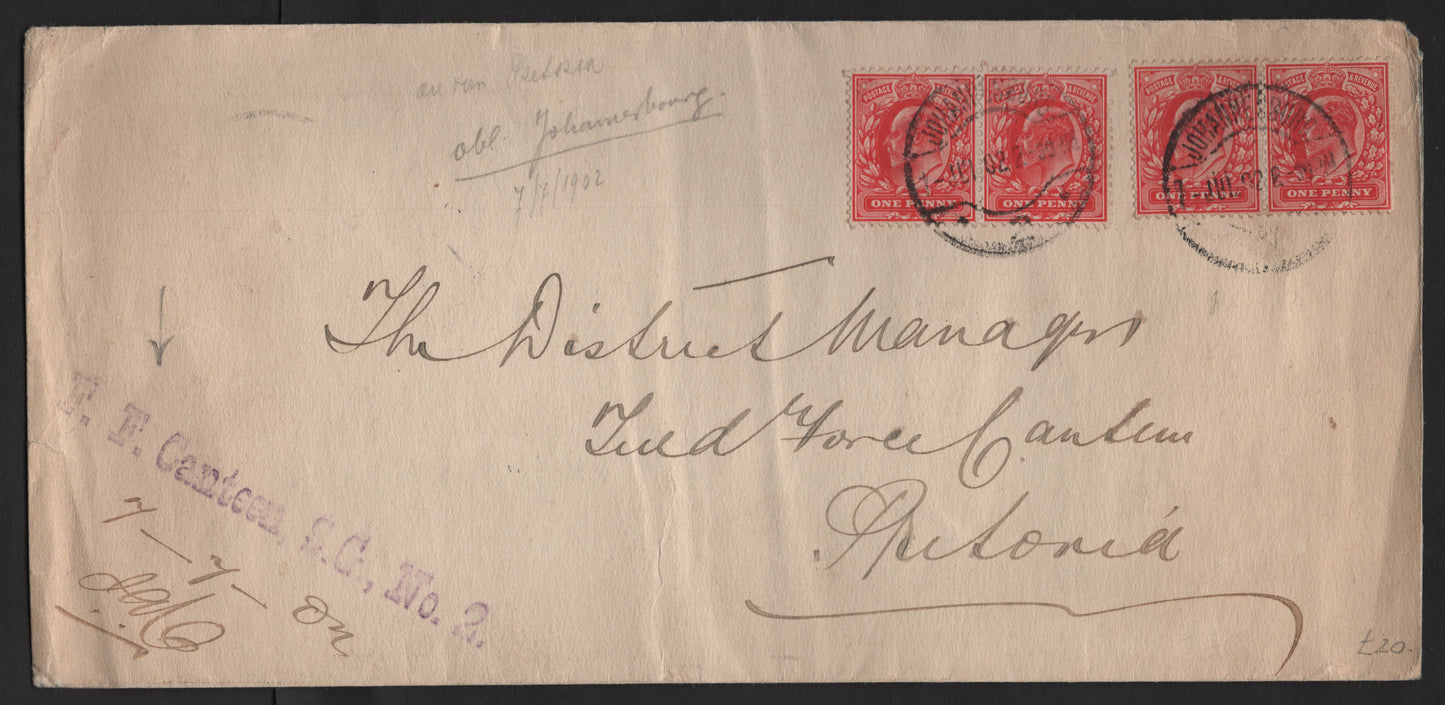 obl. Johannesbourg.
7/7/1902
POSTAGE & REVENUE
POSTAGE & REVENUE
POSTAGE & REVENUE
POSTAGE & REVENUE
ONE PENNY
ONE PENNY
ONE PENNY
ONE PENNY
JOHANNESBURG
JUL 02
JOHANNESBURG
JUL 02
The District Manager
Field Force Canteen
Pretoria
F. F. Canteen, S.C., No. 2.
7-7-02
£20.